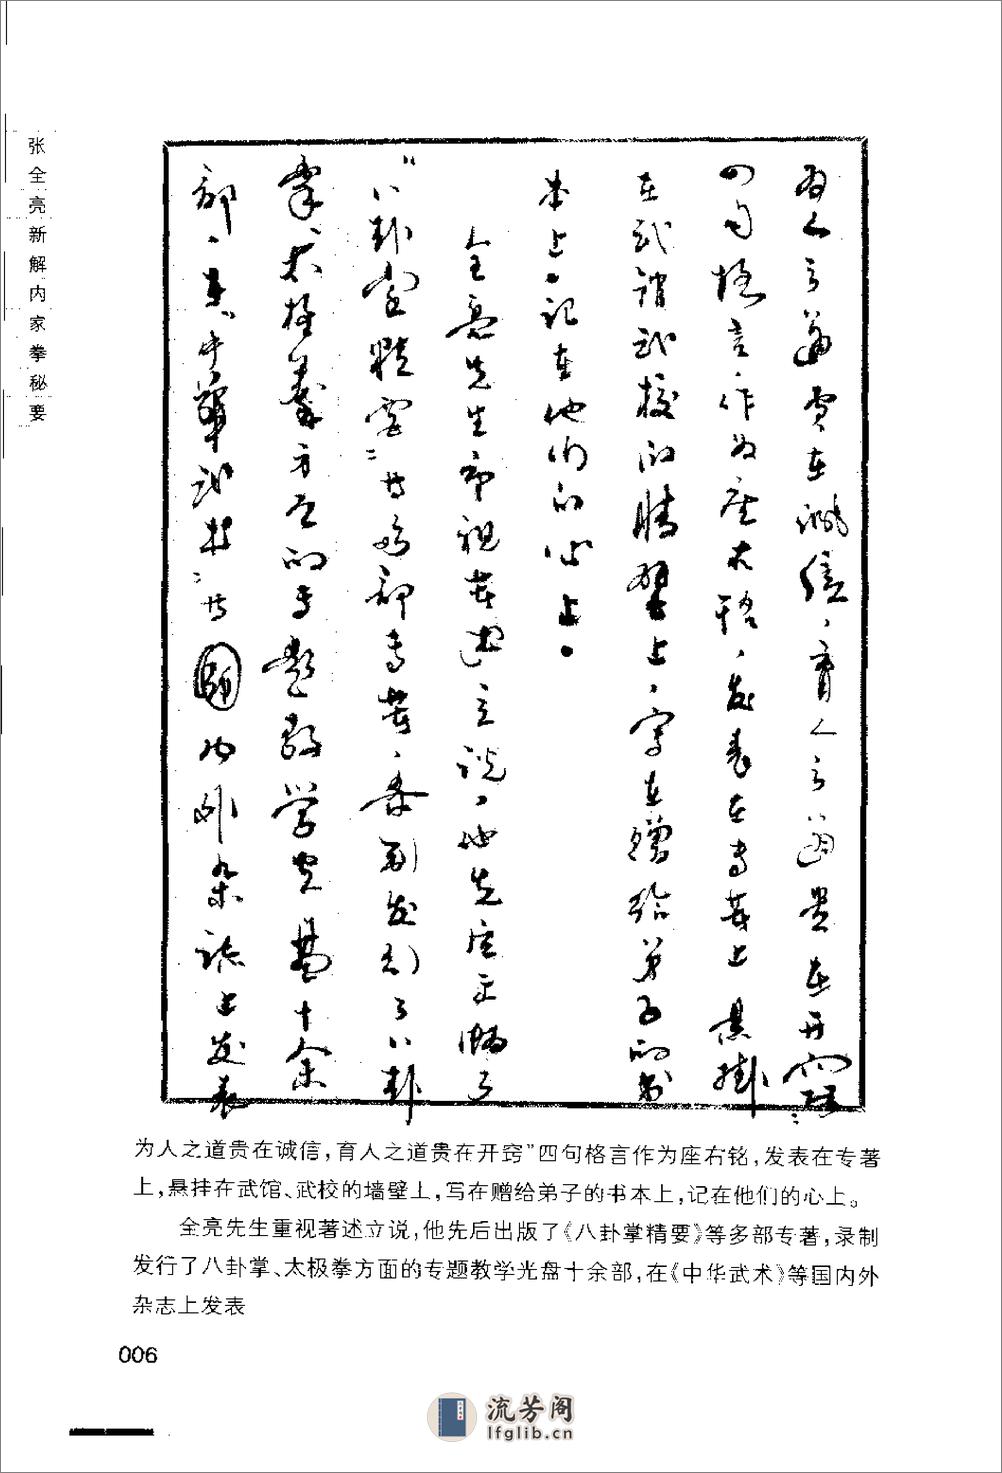 张全亮新解内家拳秘要
为人之道贵在诚信，育人之道贵在开窍”
四句格言作为座右铭，发表在专著上，悬挂
在武馆、武校的墙壁上，写在赠给弟子的书
本上。记在他们的心上。
全亮先生重视著述立说，他先后出版了
“八卦掌精要”等多部专著，录制发行了八卦
掌、太极拳方面的专题教学光盘十余
部，在“中华武术”等国内外杂志上发表
为人之道贵在诚信，育人之道贵在开窍”四句格言作为座右铭，发表在专著
上，悬挂在武馆、武校的墙壁上，写在赠给弟子的书本上，记在他们的心上。
全亮先生重视著述立说，他先后出版了《八卦掌精要》等多部专著，录制
发行了八卦掌、太极拳方面的专题教学光盘十余部，在《中华武术》等国内外
杂志上发表
006
流芳阁
lfglib.cn